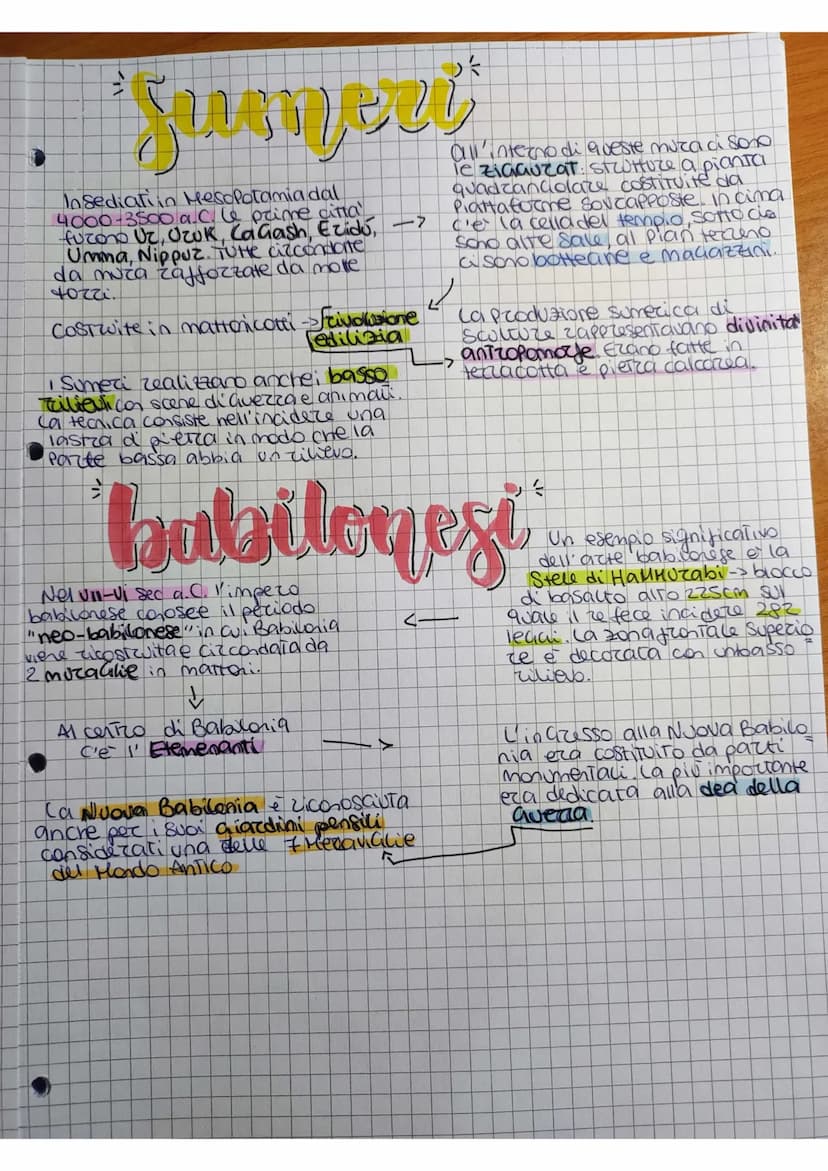 Sumeri
Insediati in Mesopotamia dal
4000-3500 a.C. le prime città
furono Ur, Uruk, Lagash, Eridú,
Umma, Nippur. Tutte circondate
da mura rafforzate da molte
torri.
all'interno di queste mura ci sono
le ziqqurat: strutture a pianta
quadrangolare costituite da
piattaforme sovrapposte. In cima
c'è la cella del tempio, sotto ci
sono altre sale, al pian terreno
ci sono botteghe e magazzini.
Costruite in mattoni cotti -> rivoluzione
edilizia
La produzione sumerica di
sculture rappresentavano divinità
antropomorfe. Erano fatte in
terracotta e pietra calcarea.
I Sumeri realizzano anche i basso
rilievi con scene di guerra e animali.
La tecnica consiste nell'incidere una
lastra di pietra in modo che la
parte bassa abbia un rilievo.
babilonesi
Un esempio significativo
dell'arte babilonese è la
Stele di Hammurabi -> blocco
di basalto alto 225cm sul
quale il re fece incidere 282
leggi. La zona frontale superio=
re è decorata con un basso
rilievo.
Nel VII-VI sec a.C. l'impero
babilonese conosce il periodo
"neo-babilonese" in cui Babilonia
viene ricostruita e circondata da
2 muraglie in mattoni.
Al centro di Babilonia
c'è l'Etemenanti
L'ingresso alla Nuova Babilo=
nia era costituito da parti
monumentali. La più importante
era dedicata alla dea della
guerra
La Nuova Babilonia è riconosciuta
anche per i suoi giardini pensili
considerati una delle 7 Meraviglie
del Mondo Antico